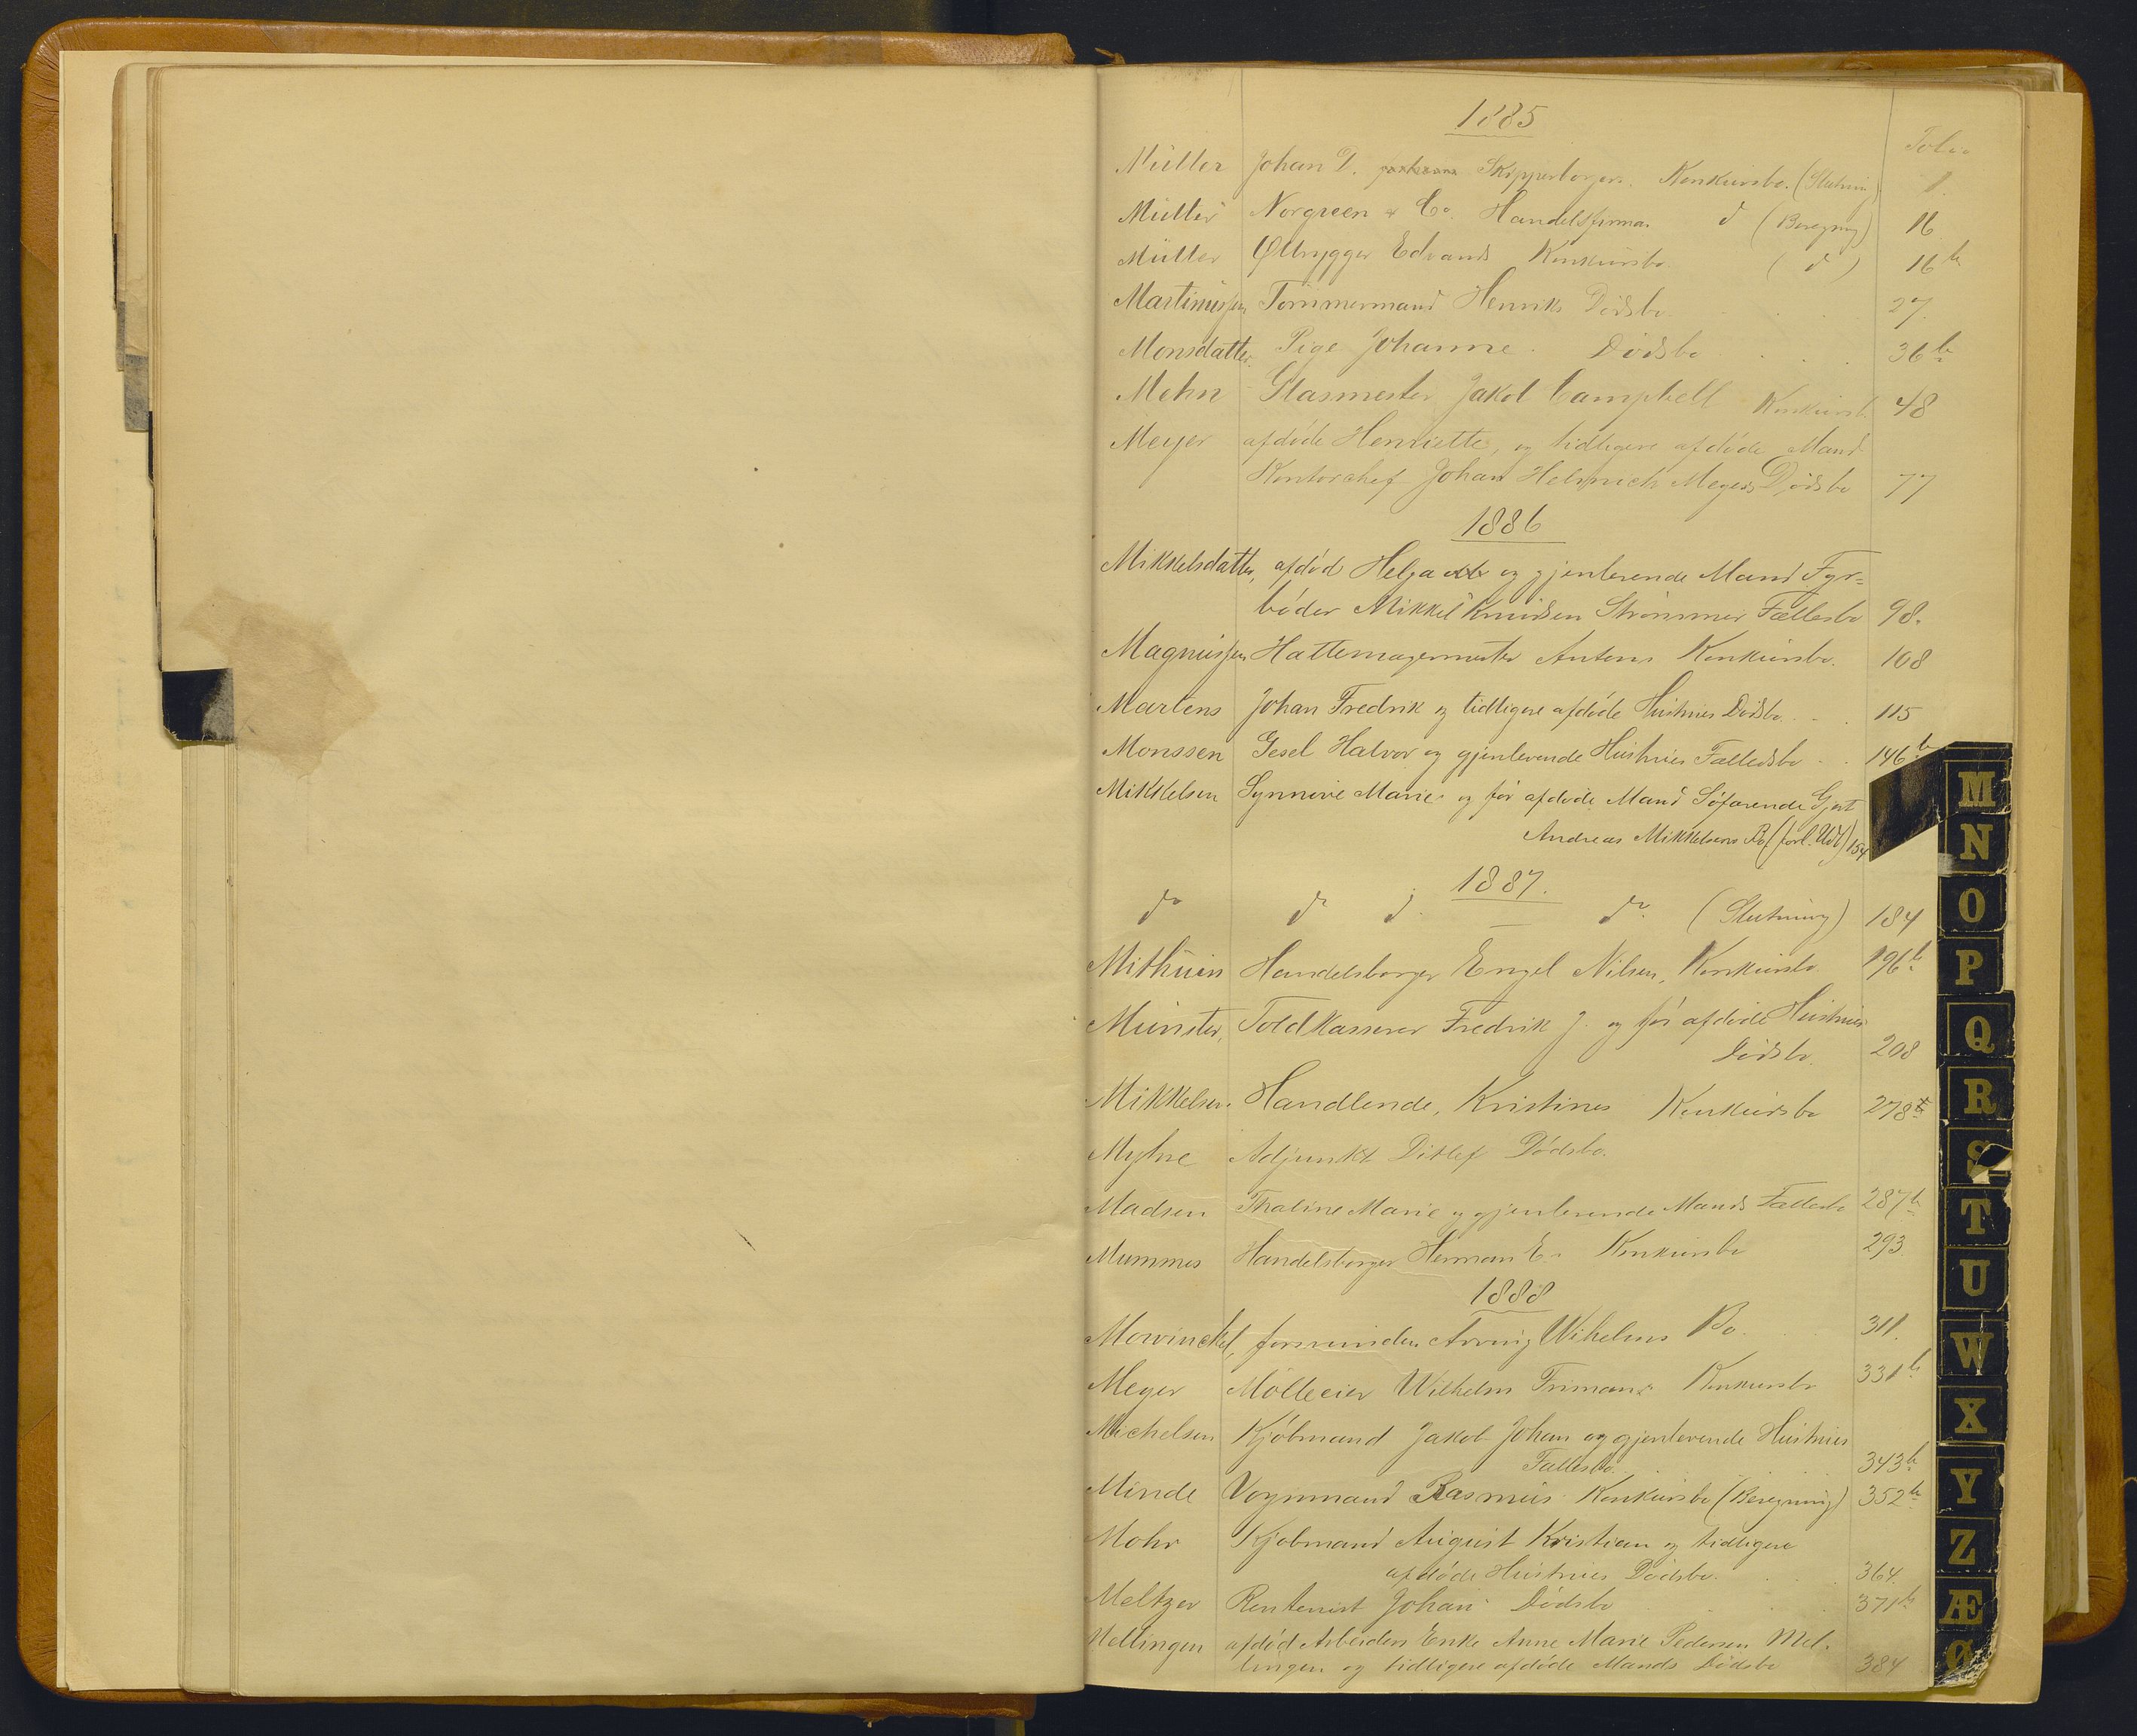 1885
Folio
Müller Johan D. Skipperborger. Konkursbo. (Slutning) 1.
Müller Norgreen & Co. Handelsfirma d (Beregning) 16
Müller Ølbrygger Edvards Konkursbo (d) 16 b
Martinussen Tømmermand Henriks Dødsbo 27.
Monsdatter Pige Johanne. Dødsbo 36 b
Mehn Glasmester Jakob Campbell Konkursb. 48
Meyer afdøde Henriette, og tidligere afdøde Mand
Kontorchef Johan Helmich Meyers Dødsbo 77
1886
Mikkelsdatter, afdød Helga og gjenlevende Mand Fyr=
bøder Mikkel Knudsen Strømmes Fællesbo 98.
Magnussen Hattemagermester Antons Konkursbo. 108
Martens Johan Fredrik og tidligere afdøde Hustrues Dødsbo 115
Monssen Gesel Halvor og gjenlevende Hustrues Fælledsbo 146 b
Mikkelsen Synnøve Marie og før afdøde Mand Søfarende Gjert
Andreas Mikkelsens Bo (forl. Udl) 154
1887.
do do d. do (Slutning) 184
Mithuin Handelsborger Engel Nilsen, Konkursbo 196 b
Münster, Toldkasserer Fredrik J. og før afdøde Hustrues
Dødsbo. 208
Mikkelsen. Handlende, Kristines Konkursbo 278 b
Myhre Adjunkt Ditlef Dødsbo.
Madsen Thaline Marie og gjenlevende Mands Fællesbo 287 b
Mummes Handelsborger Herman E. Konkursbo 293.
1888
Mowinckel, forsvunden Arving Wilhelms Bo. 311.
Meyer Mølleeier Wilhelm Frimans Konkursbo 331 b
Michelsen Kjøbmand Jakob Johan og gjenlevende Hustrues
Fællesbo. 343 b
Minde Vognmand Rasmus Konkursbo (Beregning) 352 b
Mohr Kjøbmand August Kristian og tidligere
afdøde Hustrues Dødsbo. 364.
Meltzer Rentenist Johan Dødsbo 371 b
Mellingen afdød Arbeiders Enke Anne Marie Pedersen Mel-
lingen og tidligere afdøde Mands Dødsbo 384
M
N
O
P
Q
R
S
T
U
W
X
Y
Z
Æ
Ø